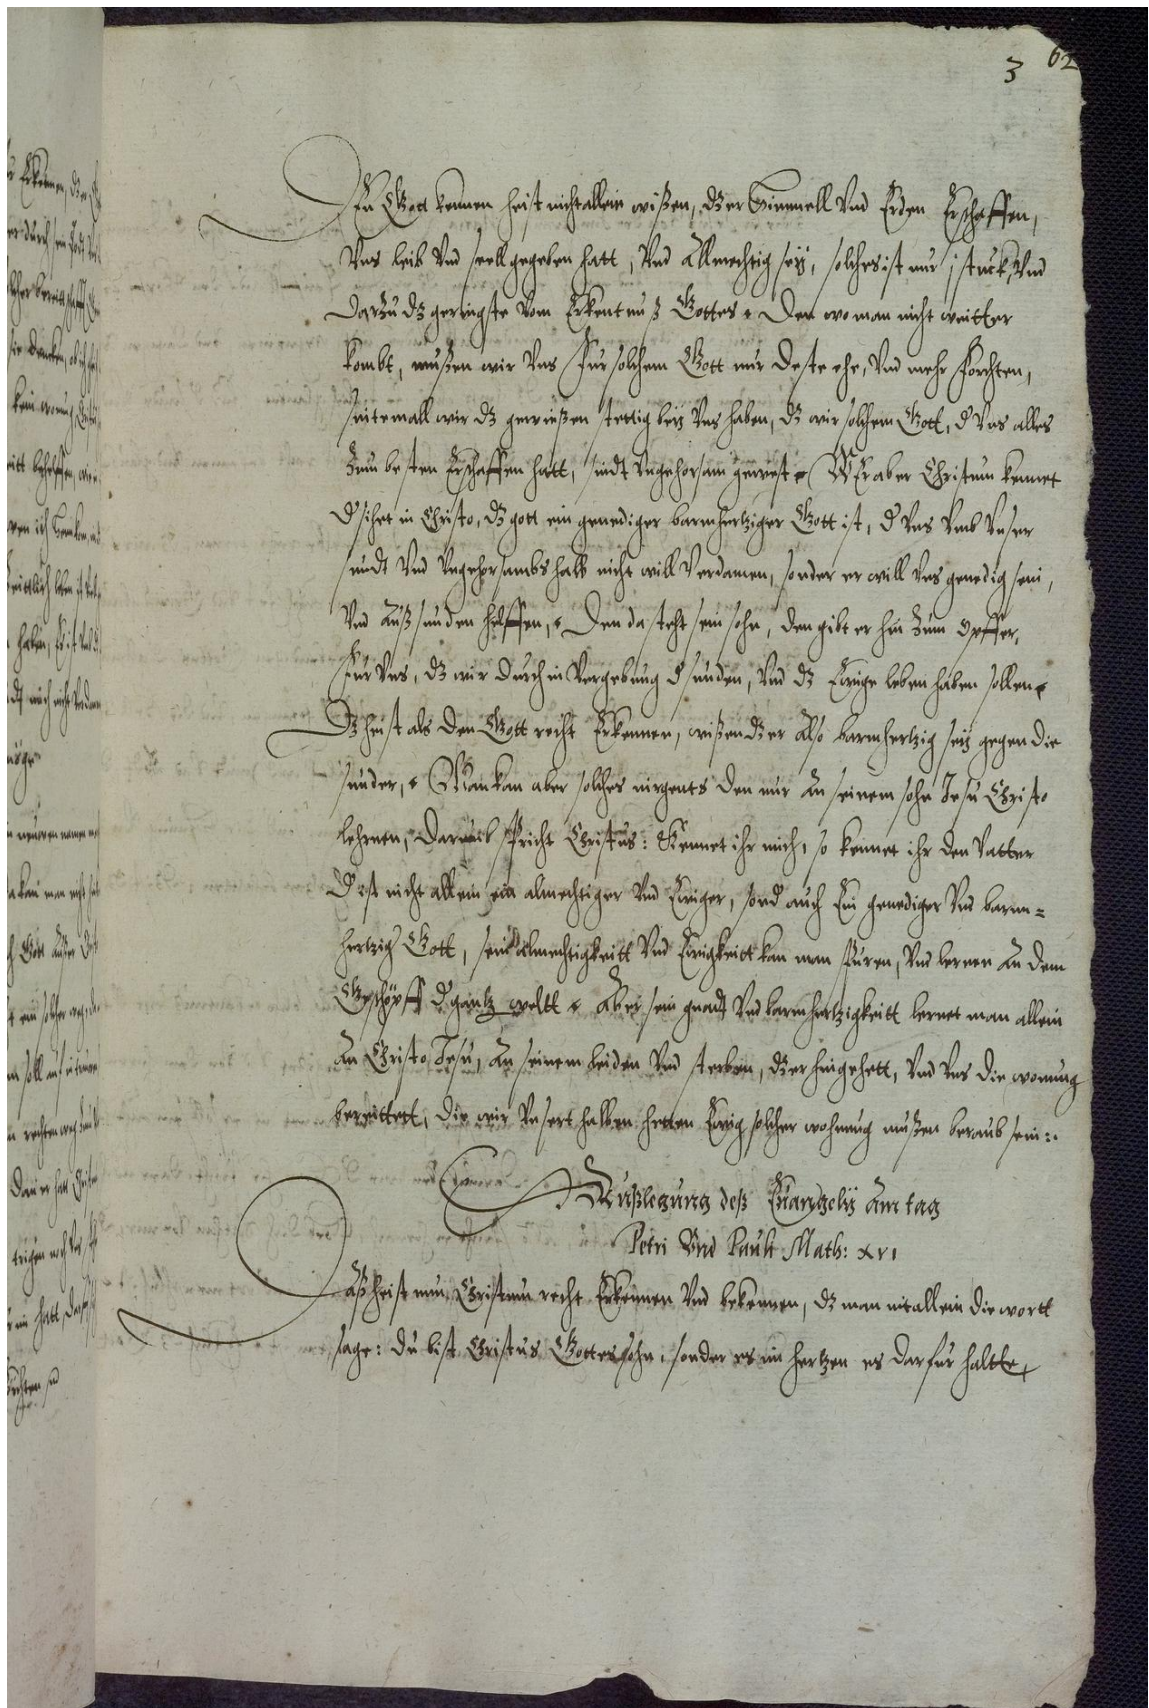 3 62
Den Gott kennen heist nicht allein wißen, dz er Himmell Vnd Erden Erschaffen,
Vns leib Vnd seell gegeben hatt, Vnd Allmechtig seÿ, solches ist nur j stuck, Vnd
darzu dz geringste Vom Erkentnuß Gottes. Den wo man nicht weitter
kombt, mußen wir Vns fur solchem Gott nur deste ehe, Vnd mehr forchten,
seitemall wir dz gewießen stettig beÿ Vns haben, dz wir solchem Gott, d Vns alles
zum besten Erschaffen hatt, sindt Vngehorsam gewest. WEr aber Christum kennet
d sihet in Christo, dz gott ein genediger barmhertziger Gott ist, d Vns Vmb Vnser
sundt Vnd Vngehorsambs halb nicht will Verdamen, sonder er will Vns genedig sein,
Vnd Auß sunden helffen, Den da steht sein sohn, den gibt er hin zum opffer,
fur Vns, dz wir durch in Vergebung d sunden, Vnd dz Ewige leben haben sollen.
Dz heist als den Gott recht Erkennen, wißen dz er Also barmhertzig seÿ gegen die
sunder, Man kan aber solches nirgents den nur An seinem sohn Jesu Christo
lehrnen, Darumb spricht Christus: Kennet ihr mich, so kennet ihr den Vatter
d ist nicht allein ein almechtiger Vnd Ewiger, sond auch Ein genediger Vnd barm=
hertzig Gott, sein Almechtigkeitt Vnd Ewigkeitt kan man spuren, Vnd lernen An dem
Geschöpff d gantz weltt. Aber sein gnadt Vnd barmhertzigkeitt lernet man allein
An Christo Jesu, An seinem leiden Vnd sterben, dz er hingehett, Vnd Vns die wonung
bereittett, die wir Vnsert halben hetten Ewig solcher wohnung mußen beraub sein:.
Außlegung deß Euangelÿ Am tag
Petri Vnd Pauli Math: xvi
Daß heist nun Christum recht Erkennen Vnd bekennen, dz man nit allein die wortt
sage: du bist Christus Gottes sohn, sonder es im hertzen es darfur haltte,